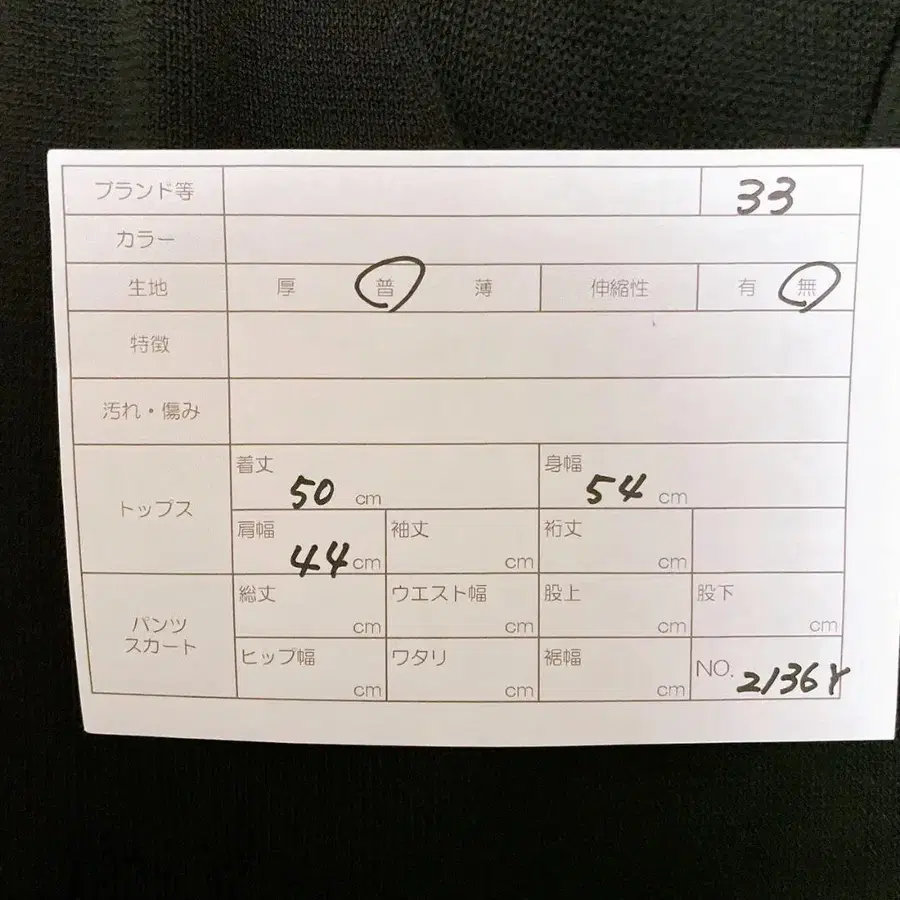 ブランド等 33
カラー
生地 厚 普 薄 伸縮性 有 無
特徴
汚れ・傷み
トップス
着丈 50 cm 身幅 54 cm
肩幅 44 cm 袖丈 cm 裄丈 cm
パンツ
スカート
総丈 cm ウエスト幅 cm 股上 cm 股下 cm
ヒップ幅 cm ワタリ cm 裾幅 cm NO. 2136Y